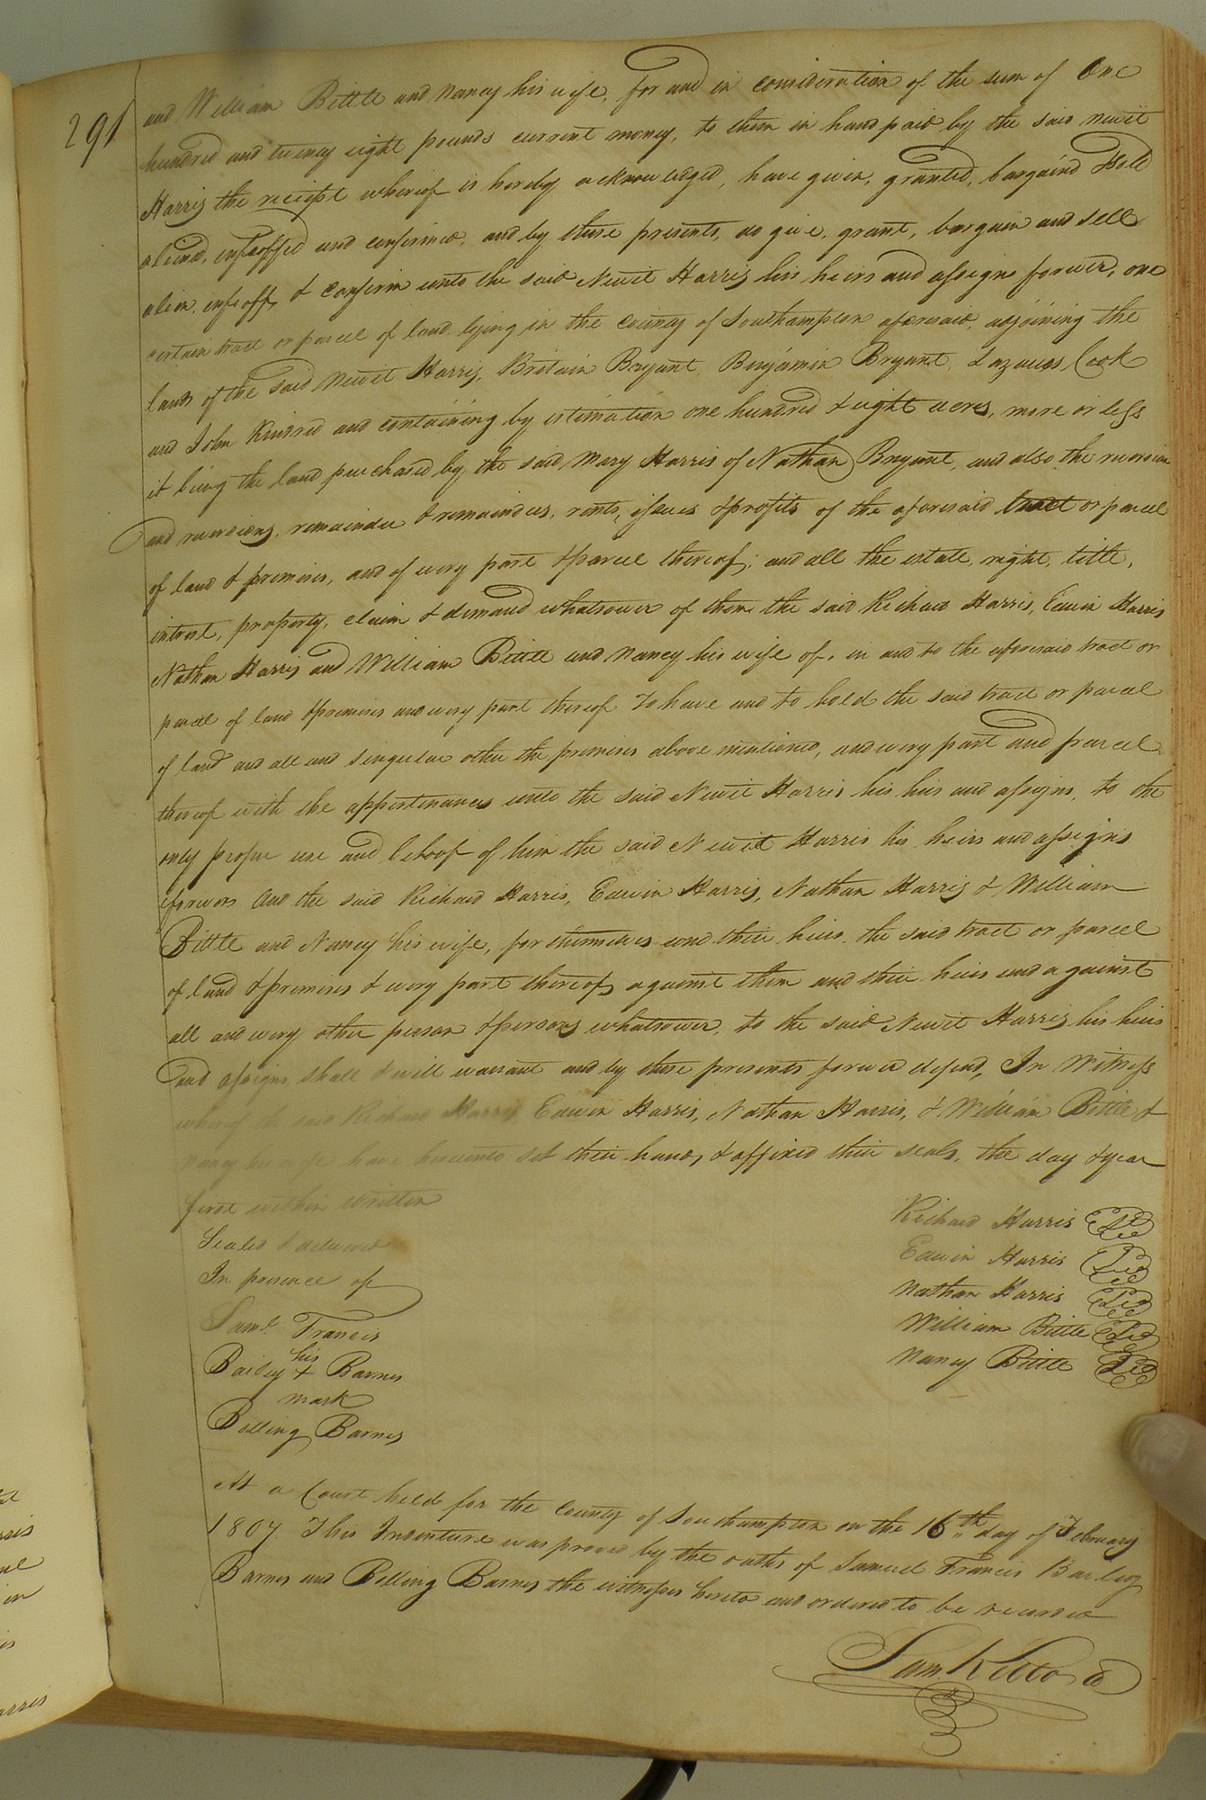 291
and William Bittle and Nancy his wife, for and in consideration of the sum of One
hundred and twenty eight pounds current money, to them in hand paid by the said Newit
Harris the receipt whereof is hereby acknowledged, have given, granted, bargain'd Sold
aliened, enfeoffed and confirmed, and by these presents, do give, grant, bargain and sell
alien, enfeoff, & confirm unto the said Newit Harris his heirs and assigns forever, one
certain tract or parcel of land lying in the county of Southampton aforesaid, adjoining the
lands of the said Newit Harris, Britain Bryant, Benjamin Bryant, Lazarus Cook
and John Kindred and containing by estimation one hundred & eight acres, more or less
it being the land purchased by the said Mary Harris of Nathan Bryant, and also the reversion
and reversions, remainder & remainders, rents, issues & profits of the aforesaid tract or parcel
of land & premises, and of every part & parcel thereof; and all the estate, right, title,
interest, property, claim & demand whatsoever of them the said Richard Harris, Edwin Harris
Nathan Harris and William Bittle and Nancy his wife of, in and to the aforesaid tract or
parcel of land & premises and every part thereof To have and to hold the said tract or parcel
of land and all and singular other the premises above mentioned, and every part and parcel
thereof with the appertenances unto the said Newit Harris his heirs and assigns, to the
only proper use and behoof of him the said Newit Harris his heirs and assigns
forever And the said Richard Harris, Edwin Harris, Nathan Harris & William
Bittle and Nancy his wife, for themselves and their heirs the said tract or parcel
of land & premises & every part thereof, against them and their heirs and against
all and every other person & persons whatsoever, to the said Newit Harris his heirs
and assigns shall & will warrant and by these presents forever defend, In Witness
whereof said Richard Harris Edwin Harris, Nathan Harris, & William Bittle &
Nancy his wife have hereunto set their hands & affixed their seals, the day & year
first within written
Sealed & delivered
In presence of
Saml. Francis
his
Bailey + Barnes
mark
Bolling Barnes
Richard Harris
Edwin Harris
Nathan Harris
William Bittle
Nancy Bittle
At a Court held for the County of Southampton on the 16th day of February
1807. This Indenture was proved by the oaths of Samuel Francis Bailey
Barnes and Bolling Barnes the witnesses hereto and ordered to be recorded
Sam. Kello